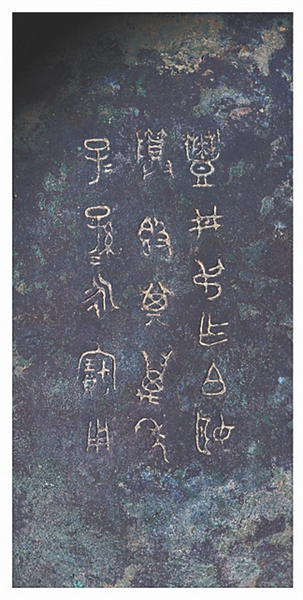 豐井叔乍白姬
尊簋其萬年
子孫＝永寶用